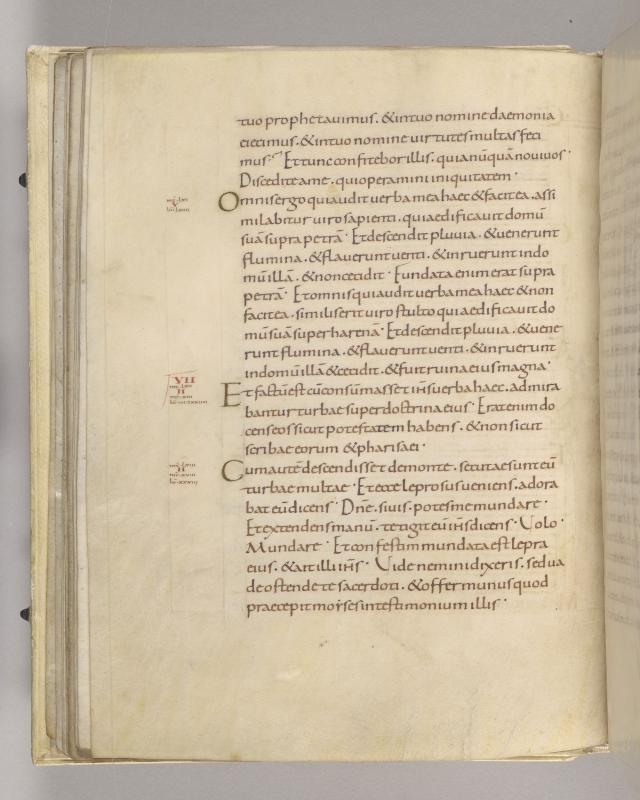 tuo prophetauimus. & in tuo nomine daemonia
eiecimus. & in tuo nomine uirtutes multas feci
mus. Et tunc confitebor illis. quia nūquā noui uos.
Discedite a me. qui operamini iniquitatem.
Omnis ergo qui audit uerba mea haec & facit ea. assi
milabitur uiro sapienti. qui aedificauit domū
suā supra petrā. Et descendit pluuia. & uenerunt
flumina. & flauerunt uenti. & inruerunt in do
mū illā. & non cecidit. Fundata enim erat supra
petrā. Et omnis qui audit uerba mea haec & non
facit ea. similis erit uiro stulto qui aedificauit do
mū suā super harenā. Et descendit pluuia. & uene
runt flumina. & flauerunt uenti. & inruerunt
in domū illā & cecidit. & fuit ruina eius magna.
VII
Et factū est cū consūmasset ih̄s uerba haec. admira
bantur turbae super doctrina eius. Erat enim do
cens eos sicut potestatem habens. & non sicut
scribae eorum & pharisaei.
Cum autē descendisset de monte. secutae sunt eū
turbae multae. Et ecce leprosus ueniens. adora
bat eū dicens. Dn̄e. si uis. potes me mundare.
Et extendens manū. tetigit eū ih̄s dicens. Uolo.
Mundare. Et confestim mundata est lepra
eius. & ait illi ih̄s. Uide nemini dixeris. sed ua
de ostende te sacerdoti. & offer munus quod
praecepit moyses in testimonium illis.